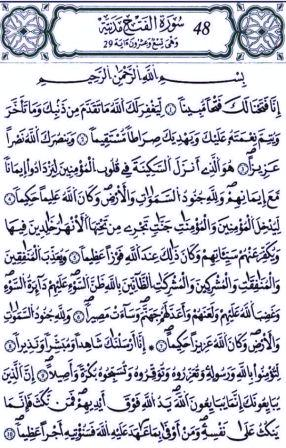 سُورَةُ الْفَتْحِ مَدَنِيَّةٌ 48
وَهْيَ تِسْعٌ وَعِشْرُونَ ءَايَةً 29
بِسْمِ اللَّهِ الرَّحْمَٰنِ الرَّحِيمِ
إِنَّا فَتَحْنَا لَكَ فَتْحاً مُّبِيناً ۝ لِّيَغْفِرَ لَكَ اللَّهُ مَا تَقَدَّمَ مِن ذَنۢبِكَ وَمَا تَأَخَّرَ
وَيُتِمَّ نِعْمَتَهُۥ عَلَيْكَ وَيَهْدِيَكَ صِرَٰطاً مُّسْتَقِيماً ۝ وَيَنصُرَكَ اللَّهُ نَصْراً
عَزِيزاً ۝ هُوَ الَّذِي أَنزَلَ السَّكِينَةَ فِي قُلُوبِ الْمُؤْمِنِينَ لِيَزْدَادُوا إِيمَٰناً
مَّعَ إِيمَٰنِهِمْ وَلِلَّهِ جُنُودُ السَّمَٰوَٰتِ وَالْأَرْضِ وَكَانَ اللَّهُ عَلِيماً حَكِيماً ۝
لِّيُدْخِلَ الْمُؤْمِنِينَ وَالْمُؤْمِنَٰتِ جَنَّٰتٍ تَجْرِي مِن تَحْتِهَا الْأَنْهَٰرُ خَٰلِدِينَ فِيهَا
وَيُكَفِّرَ عَنْهُمْ سَيِّـَٔاتِهِمْ وَكَانَ ذَٰلِكَ عِندَ اللَّهِ فَوْزاً عَظِيماً ۝ وَيُعَذِّبَ الْمُنَٰفِقِينَ
وَالْمُنَٰفِقَٰتِ وَالْمُشْرِكِينَ وَالْمُشْرِكَٰتِ الظَّآنِّينَ بِاللَّهِ ظَنَّ السَّوْءِ عَلَيْهِمْ دَآئِرَةُ السَّوْءِ
وَغَضِبَ اللَّهُ عَلَيْهِمْ وَلَعَنَهُمْ وَأَعَدَّ لَهُمْ جَهَنَّمَ وَسَآءَتْ مَصِيراً ۝ وَلِلَّهِ جُنُودُ السَّمَٰوَٰتِ
وَالْأَرْضِ وَكَانَ اللَّهُ عَزِيزاً حَكِيماً ۝ إِنَّآ أَرْسَلْنَٰكَ شَٰهِداً وَمُبَشِّراً وَنَذِيراً ۝
لِّتُؤْمِنُوا بِاللَّهِ وَرَسُولِهِۦ وَتُعَزِّرُوهُ وَتُوَقِّرُوهُ وَتُسَبِّحُوهُ بُكْرَةً وَأَصِيلاً ۝ إِنَّ الَّذِينَ
يُبَايِعُونَكَ إِنَّمَا يُبَايِعُونَ اللَّهَ يَدُ اللَّهِ فَوْقَ أَيْدِيهِمْ فَمَن نَّكَثَ فَإِنَّمَا
يَنكُثُ عَلَىٰ نَفْسِهِۦ وَمَنْ أَوْفَىٰ بِمَا عَٰهَدَ عَلَيْهِ اللَّهَ فَسَنُؤْتِيهِ أَجْراً عَظِيماً ۝